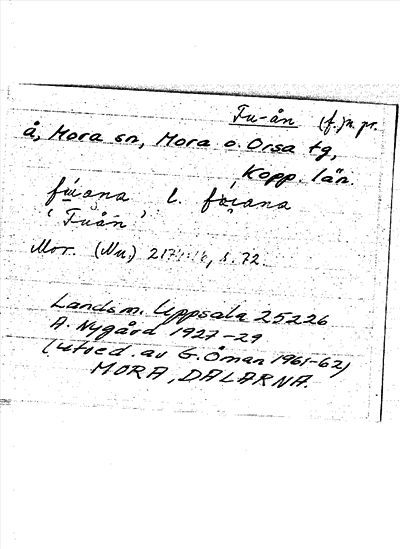 Fu-ån (f.) n. pr.
å, Mora sn, Mora o. Orsa tg,
Kopp. län.
fúana l. fúana
'Fuån'
Mor. (Nu.) s. 72.
Landsm. Uppsala 25226
A. Nygård 1927-29
(utred. av G. Öman 1961-62)
MORA, DALARNA.